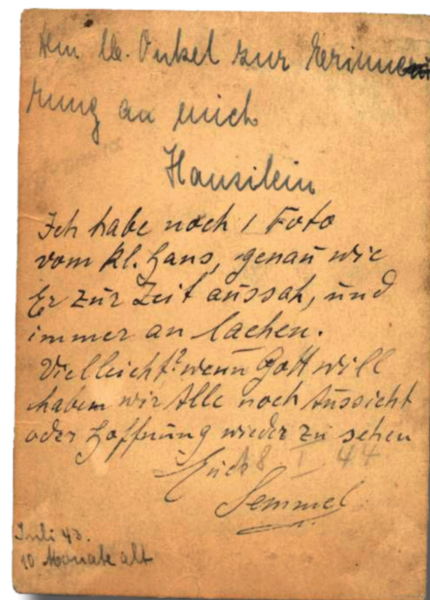 Dem lb. Onkel zur Erinne
rung an mich
Hansilein
Ich habe noch 1 Foto
vom kl. Hans, genau wie
Er zur Zeit aussah, und
immer am lachen.
Vielleicht? wenn Gott will
haben wir Alle noch Aussicht
oder Hoffnung wieder zu sehen
Euch
18 I 44
Semmel
Juli 43.
10 Monate alt